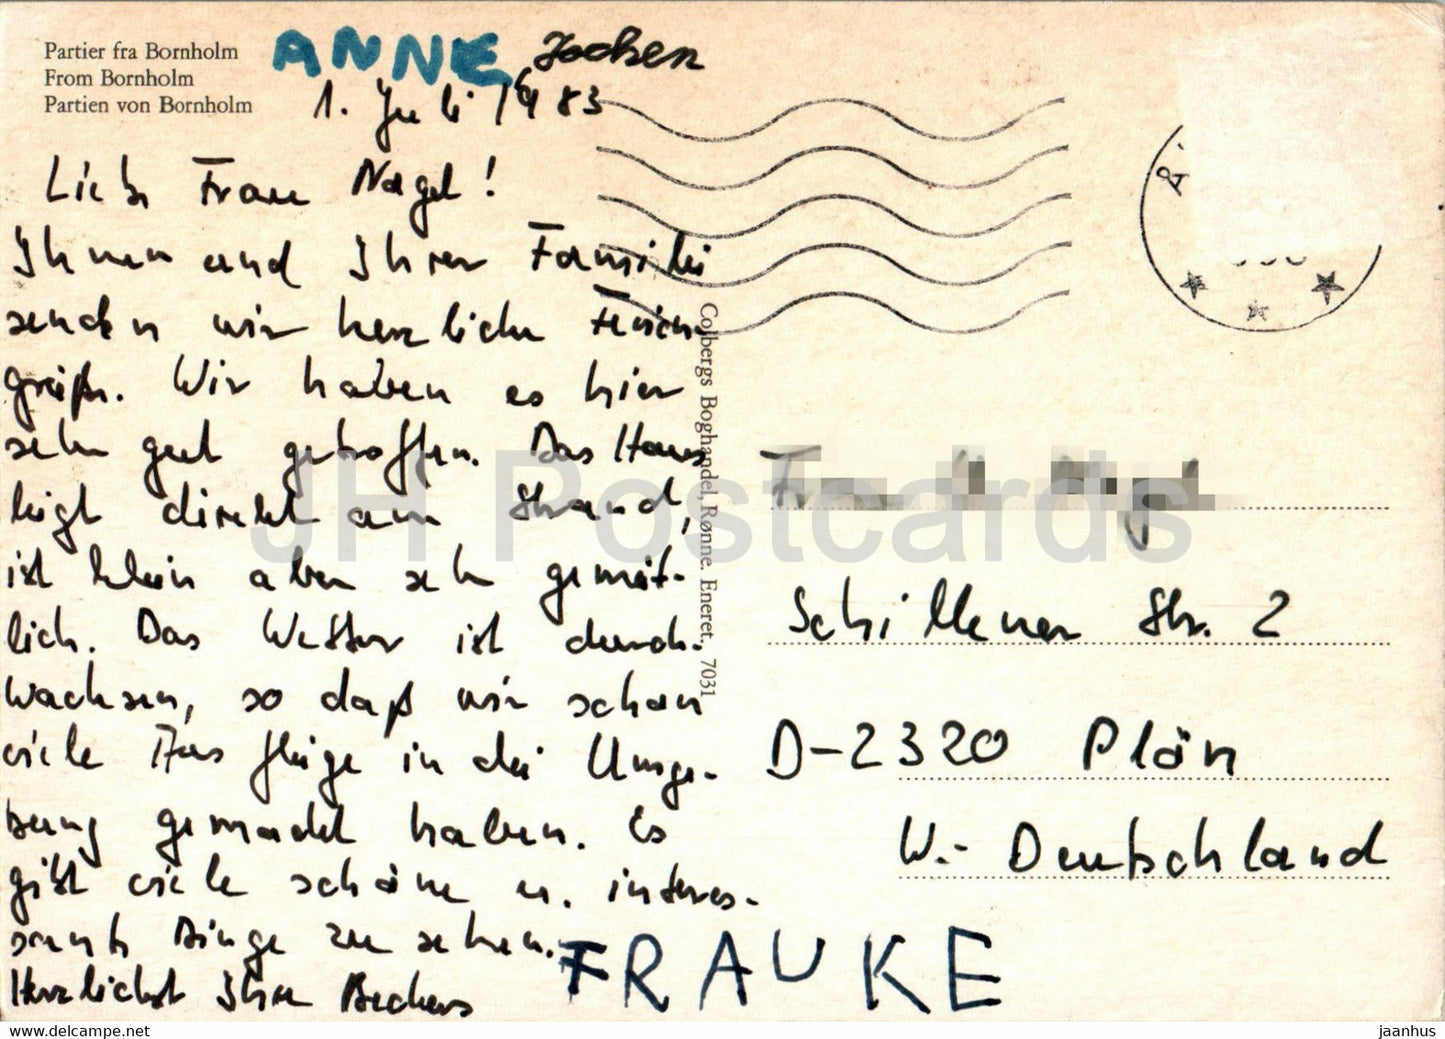 Partier fra Bornholm
From Bornholm
Partien von Bornholm
ANNE Jochen
1. Juli 1983
Liebe Frau Nagel!
Ihnen und Ihrer Familie
senden wir herzliche Ferien-
grüße. Wir haben es hier
sehr gut getroffen. Das Haus
liegt direkt am Strand,
ist klein aber sehr gemüt-
lich. Das Wetter ist durch-
wachsen, so daß wir schon
viele Ausflüge in die Umge-
bung gemacht haben. Es
gibt viele schöne u. interes-
sante Dinge zu sehen.
Herzlichst Ihre Beckers
FRAUKE
Colbergs Boghandel, Rønne. Eneret. 7031
Frau Nagel
Schillener Str. 2
D-2320 Plön
W.- Deutschland
JH Postcards
www.delcampe.net
jaanhus